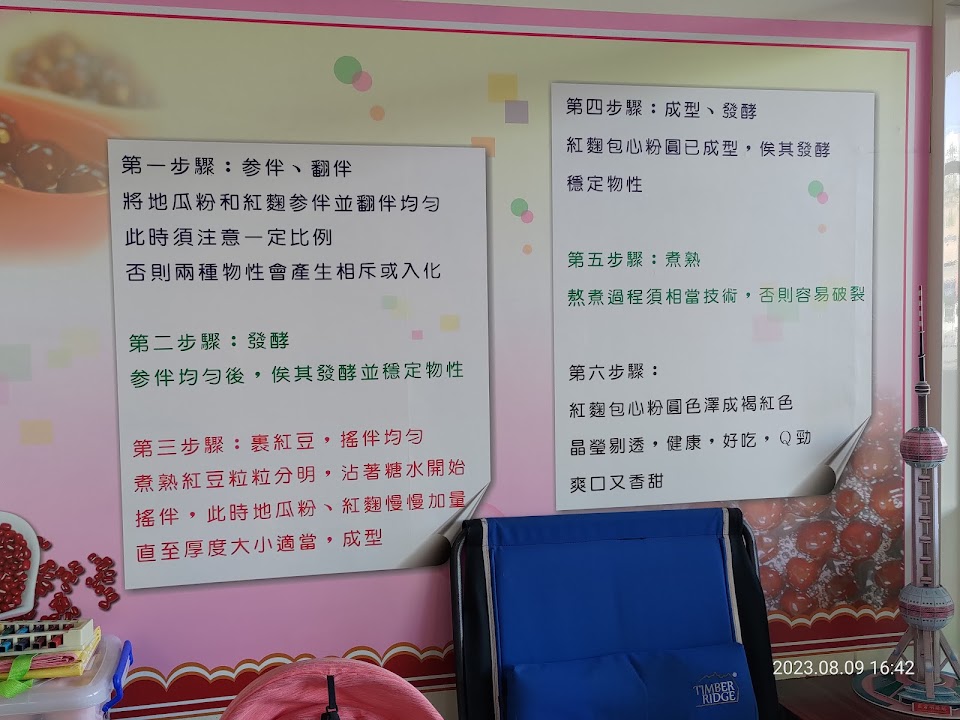 第一步驟：參伴、翻伴
將地瓜粉和紅麴參伴並翻伴均勻
此時須注意一定比例
否則兩種物性會產生相斥或入化
第二步驟：發酵
參伴均勻後，俟其發酵並穩定物性
第三步驟：裹紅豆，搖伴均勻
煮熟紅豆粒粒分明，沾著糖水開始
搖伴，此時地瓜粉、紅麴慢慢加量
直至厚度大小適當，成型
第四步驟：成型、發酵
紅麴包心粉圓已成型，俟其發酵
穩定物性
第五步驟：煮熟
熬煮過程須相當技術，否則容易破裂
第六步驟：
紅麴包心粉圓色澤成褐紅色
晶瑩剔透，健康，好吃，Q勁
爽口又香甜
TIMBER RIDGE
2023.08.09 16:42